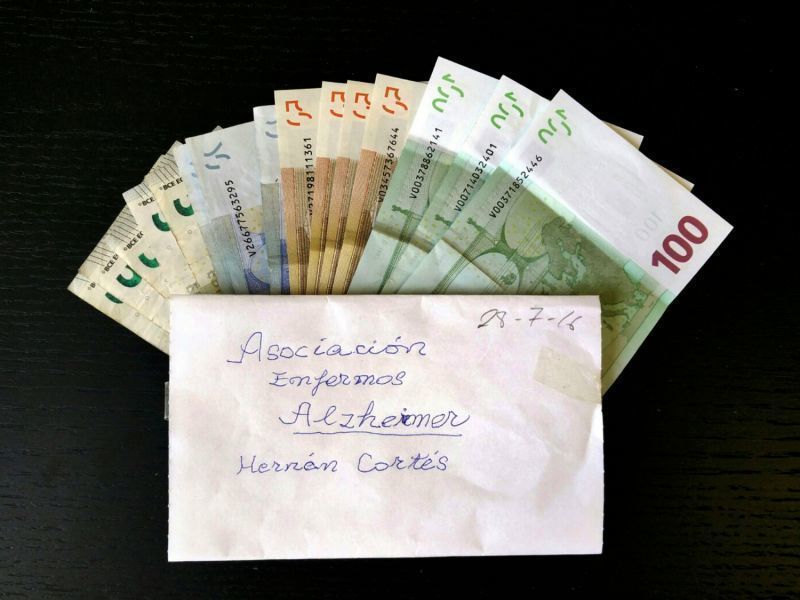 V26677563295
V27198111361
V03457367644
V00378862141
V00714032401
V00371852446
100
100
BCE
BCE EC
BCE E
28-7-16
Asociación
Enfermos
Alzheimer
Hernán Cortés